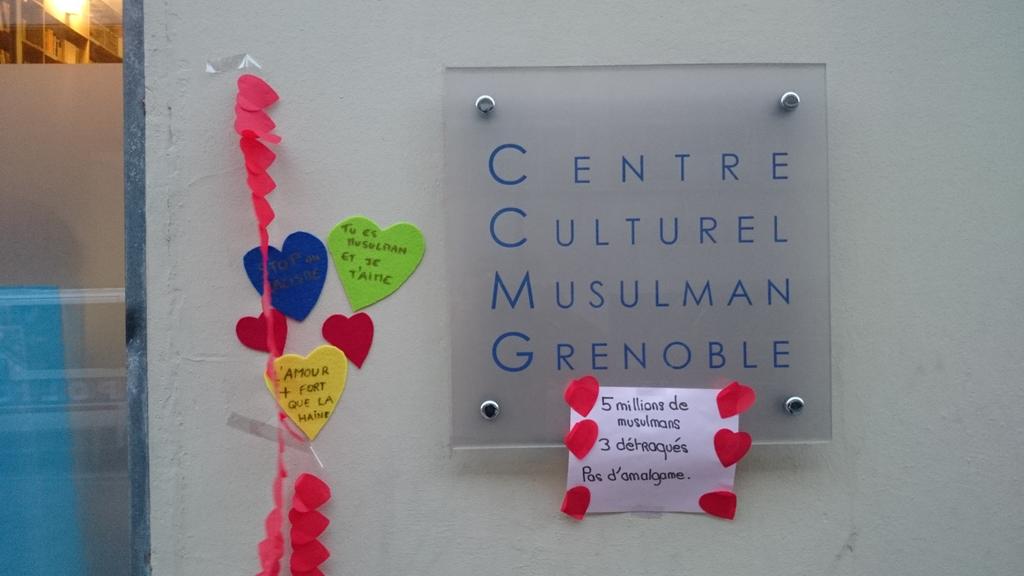 CENTRE
CULTUREL
MUSULMAN
GRENOBLE
TU ES
MUSULMAN
ET JE
T'AIME
STOP au
RACISME
'AMOUR
+ FORT
QUE LA
HAINE
5 millions de
musulmans
3 détraqués
Pas d'amalgame.